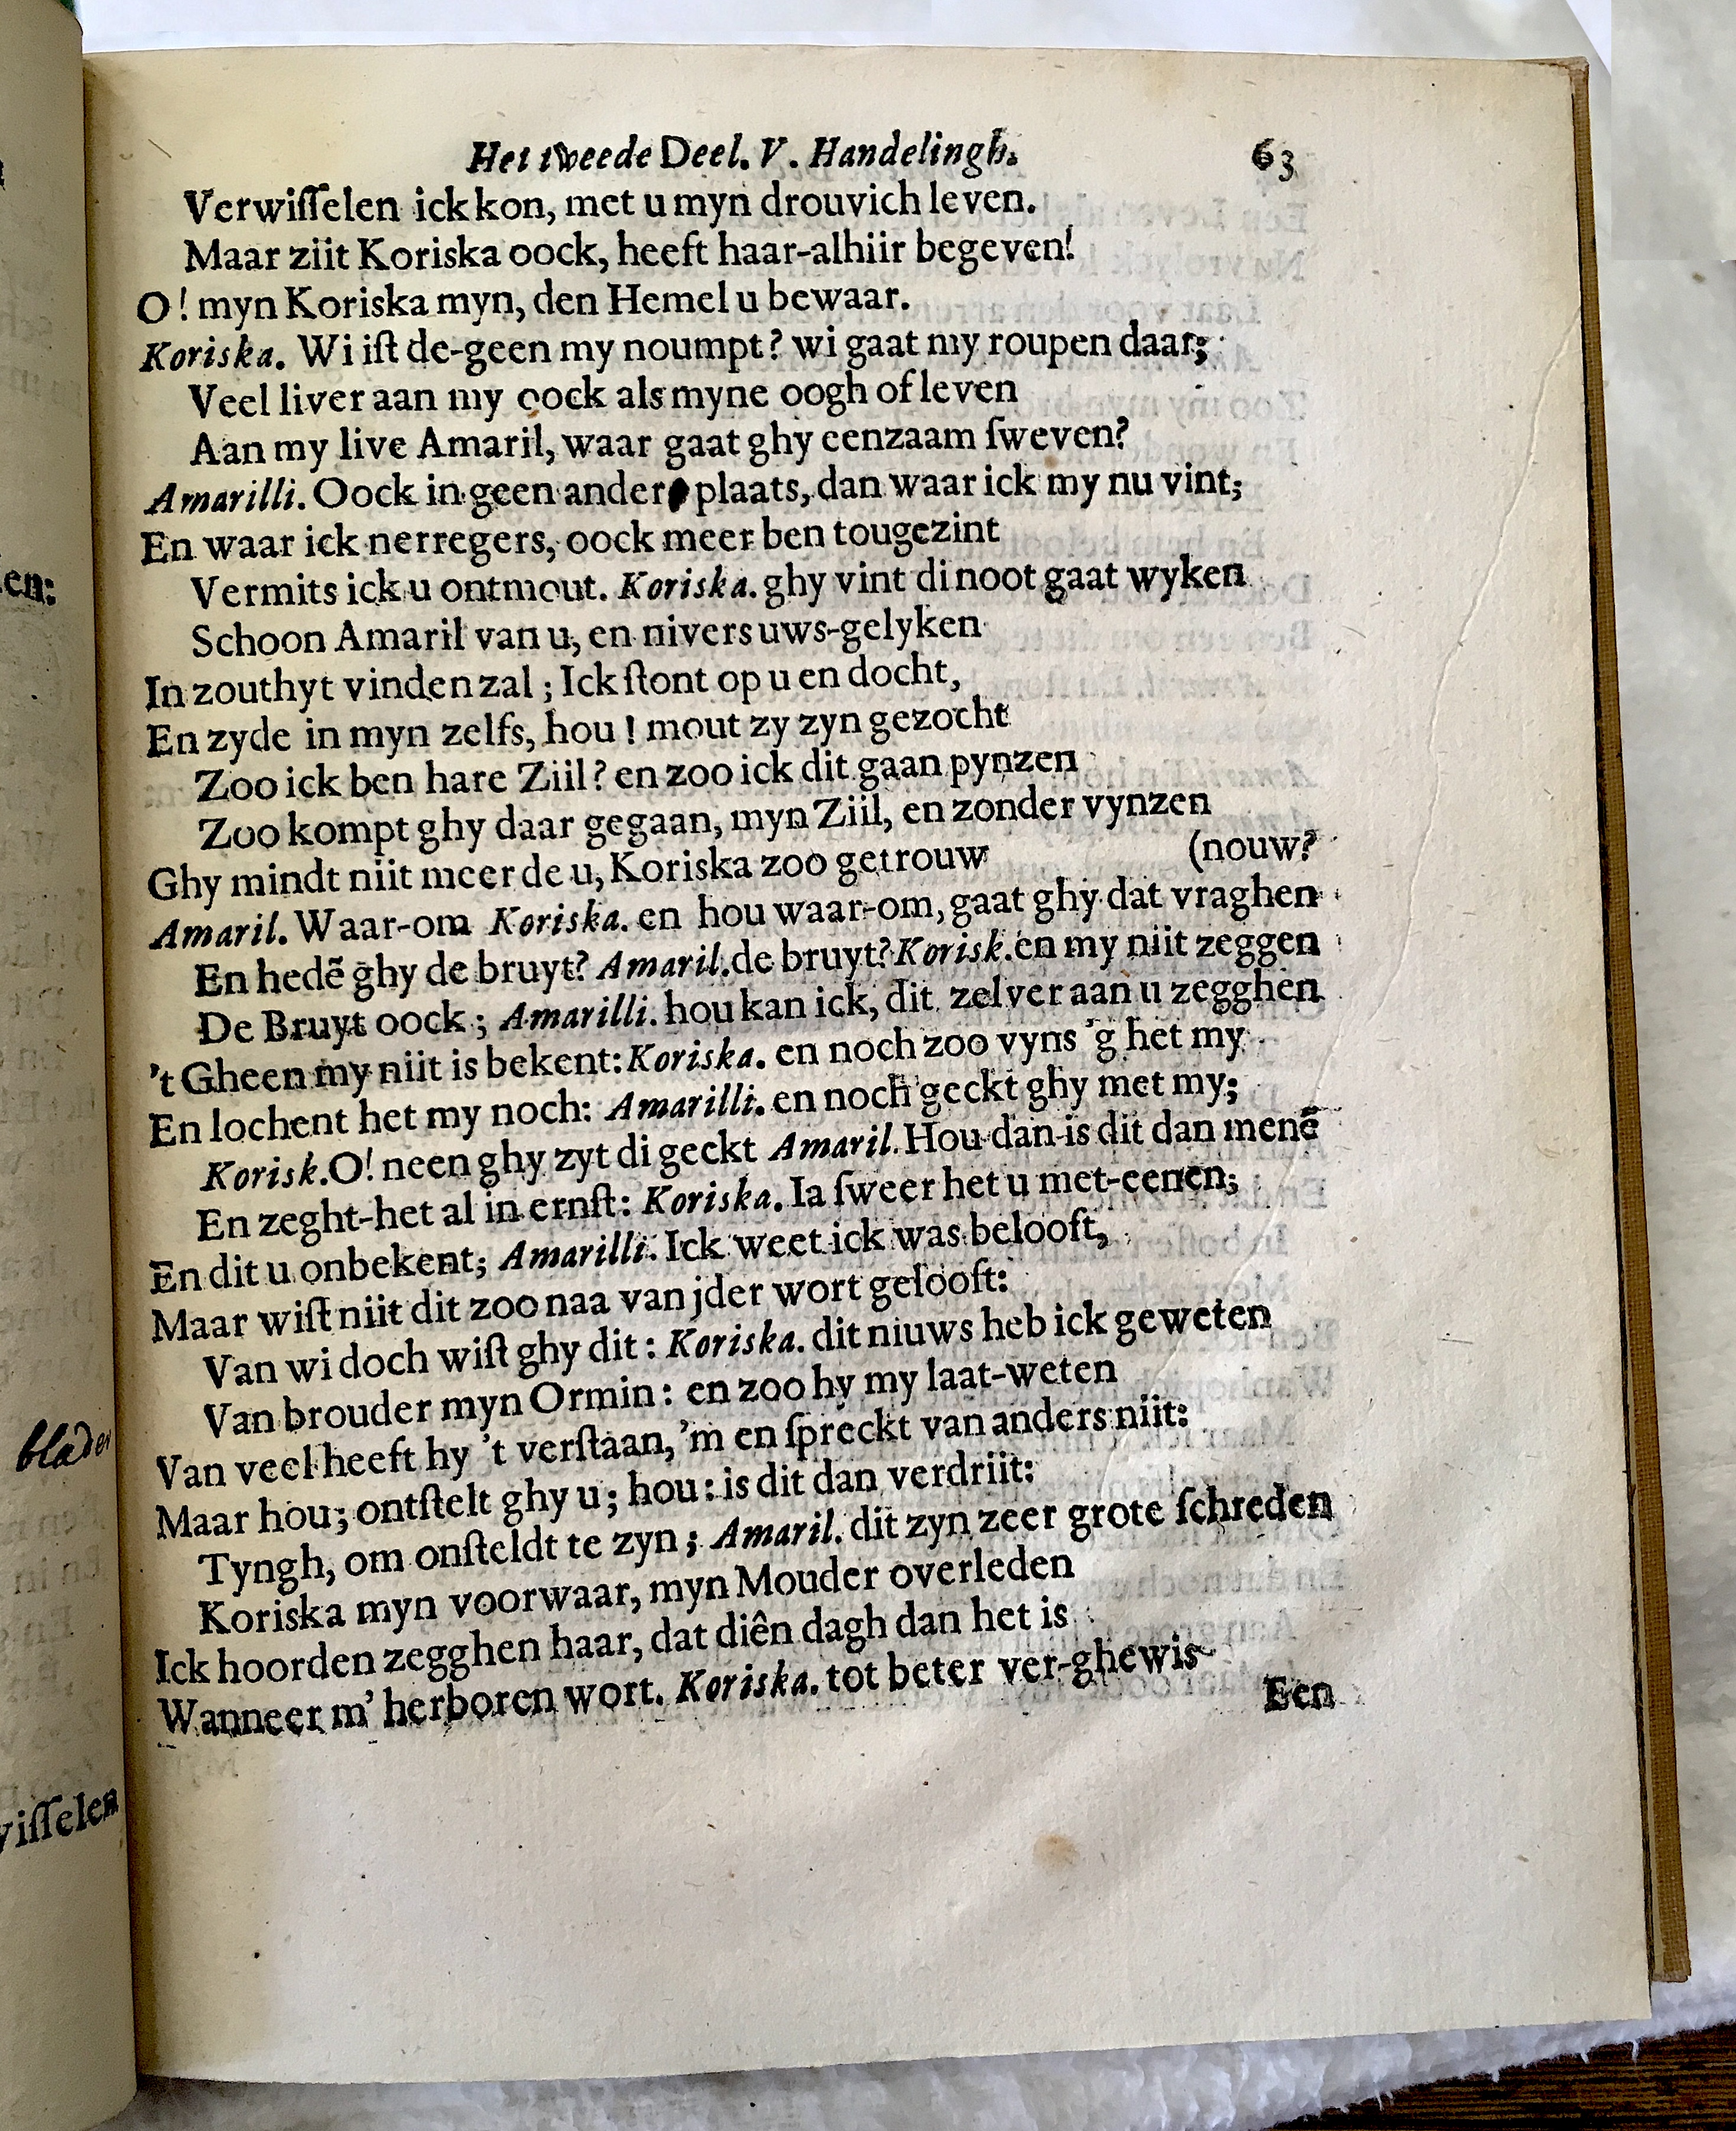 Het tweede Deel. V. Handelingh. 63
Verwiſſelen ick kon, met u myn drouvich leven.
Maar ziit Koriska oock, heeft haar-alhiir begeven!
O! myn Koriska myn, den Hemel u bewaar.
Koriska. Wi iſt de-geen my noumpt? wi gaat my roupen daar;
Veel liver aan my oock als myne oogh of leven
Aan my live Amaril, waar gaat ghy eenzaam ſweven?
Amarilli. Oock in geen ander plaats, dan waar ick my nu vint;
En waar ick nerregers, oock meer ben tougezint
Vermits ick u ontmout. Koriska. ghy vint di noot gaat wyken
Schoon Amaril van u, en nivers uws-gelyken
In zouthyt vinden zal; Ick ſtont op u en docht,
En zyde in myn zelfs, hou! mout zy zyn gezocht
Zoo ick ben hare Ziil? en zoo ick dit gaan pynzen
Zoo kompt ghy daar gegaan, myn Ziil, en zonder vynzen
Ghy mindt niit meer de u, Koriska zoo getrouw (nouw?
Amaril. Waar-om Koriska. en hou waar-om, gaat ghy dat vraghen
En hedẽ ghy de bruyt? Amaril. de bruyt? Korisk. en my niit zeggen
De Bruyt oock; Amarilli. hou kan ick, dit zelver aan u zegghen
't Gheen my niit is bekent: Koriska. en noch zoo vyns 'g het my
En lochent het my noch: Amarilli. en noch geckt ghy met my;
Korisk. O! neen ghy zyt di geckt Amaril. Hou dan is dit dan menẽ
En zeght-het al in ernſt: Koriska. Ia ſweer het u met-eenen;
En dit u onbekent; Amarilli. Ick weet ick was belooft,
Maar wiſt niit dit zoo naa van jder wort gelooft:
Van wi doch wiſt ghy dit: Koriska. dit niuws heb ick geweten
Van brouder myn Ormin: en zoo hy my laat-weten
Van veel heeft hy 't verſtaan, 'm en ſpreckt van anders niit:
Maar hou; ontſtelt ghy u; hou: is dit dan verdriit:
Tyngh, om onſteldt te zyn; Amaril. dit zyn zeer grote ſchreden
Koriska myn voorwaar, myn Mouder overleden
Ick hoorden zegghen haar, dat diên dagh dan het is
Wanneer m' herboren wort. Koriska. tot beter ver-ghewis-
Een
en:
blader
viſſelen